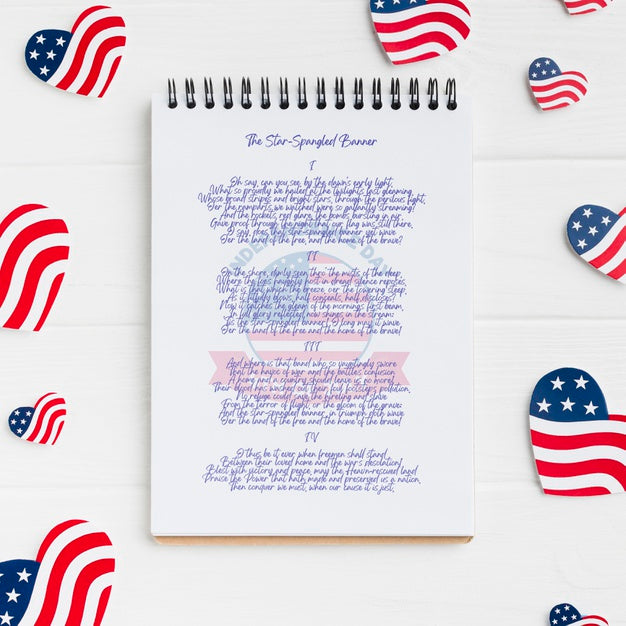 The Star-Spangled Banner
I
Oh say, can you see, by the dawn's early light,
What so proudly we hailed at the twilight's last gleaming,
Whose broad stripes and bright stars, through the perilous fight,
O'er the ramparts we watched were so gallantly streaming?
And the rockets red glare, the bombs bursting in air,
Gave proof through the night that our flag was still there,
O say, does that star-spangled banner yet wave
O'er the land of the free, and the home of the brave?
INDEPENDENCE DAY
II
On the shore, dimly seen thro' the mists of the deep,
Where the foe's haughty host in dread silence reposes,
What is that which the breeze, o'er the towering steep,
As it fitfully blows, half conceals, half discloses?
Now it catches the gleam of the morning's first beam,
In full glory reflected now shines in the stream:
'Tis the star-spangled banner! O long may it wave
O'er the land of the free and the home of the brave!
III
And where is that band who so vauntingly swore
That the havoc of war and the battle's confusion,
A home and a country should leave us no more?
Their blood has washed out their foul footsteps' pollution,
No refuge could save the hireling and slave
From the terror of flight, or the gloom of the grave:
And the star-spangled banner, in triumph doth wave
O'er the land of the free and the home of the brave!
IV
O thus be it ever when freemen shall stand,
Between their loved home and the war's desolation!
Blest with victory and peace, may the Heav'n-rescued land
Praise the Power that hath made and preserved us a nation,
Then conquer we must, when our cause it is just,